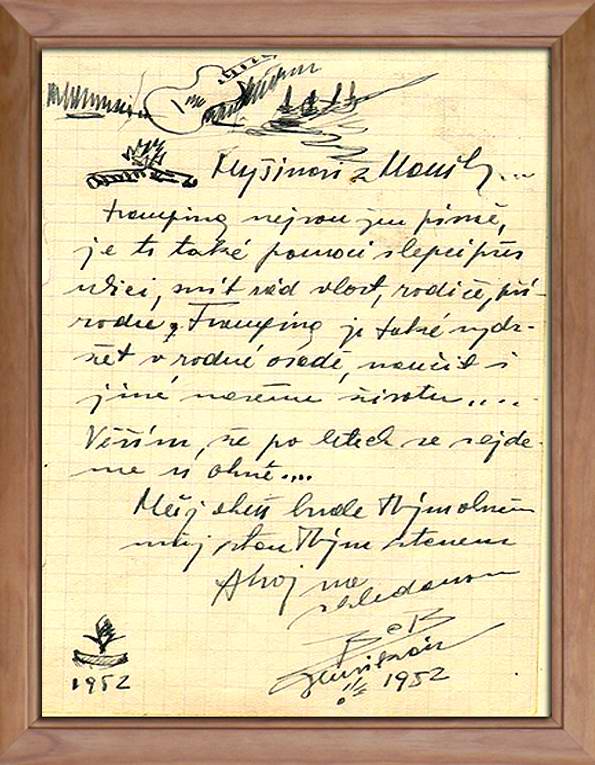 tramping nejsou jen písně,
je to také pomoci slepci přes
ulici, mít rád vlast, rodiče, pří-
rodu, Tramping je také vydr-
žet v rodné osadě, naučit i
jiné našemu životu....
Věřím, že po letech se sejde-
me u ohně....
Můj oheň bude Tvým ohněm
můj stan Tvým stanem
Ahoj na
shledanou
Bob
1952
1952